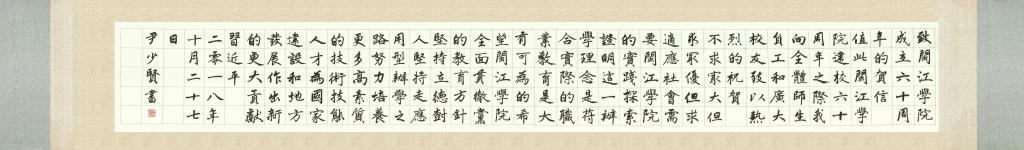 致閩江學院
成立六十周
年的賀信
值此閩江學
院建校六十
周年之際我
向全體師生
員工和廣大
校友致以熱
烈的祝賀
不求最大但
求最優但求
適應社會需
要閩江學院
的實踐探索
證明這一辦
學理念是符
合實際的職
業教育是大
有可為的希
望閩江學院
全面貫徹黨
的教育方針
堅持立德樹
人堅持走應
用型辦學之
路努力培養
更多高素質
的技術技能
人才為國家
建設和地方
發展作出新
的更大貢獻
習近平
二零一八年
十月二十七
日
尹少賢書